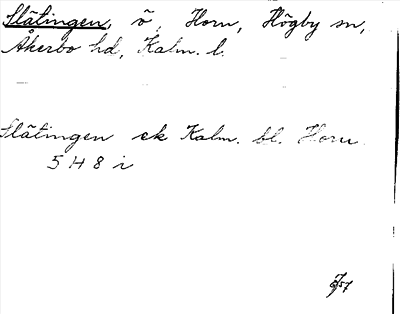 Slätingen, ö, Horn, Högby sn,
Åkerbo hd, Kalm. l.
Slätingen ek Kalm. bl. Horn
5 H 8 i